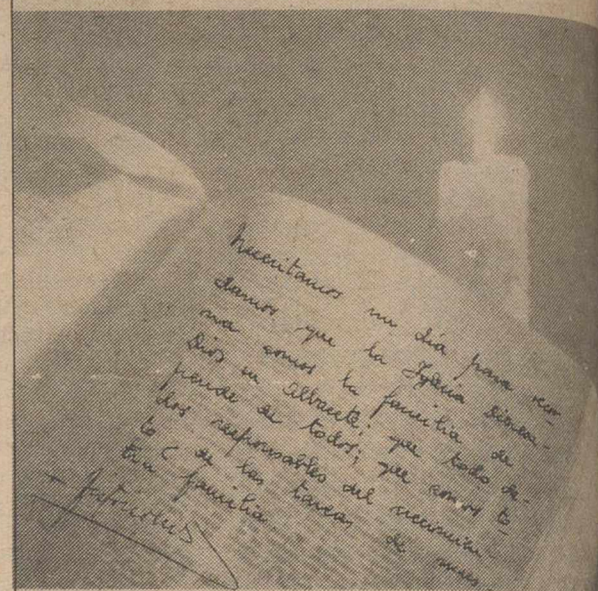 Necesitamos un día para recor-
damos que la Iglesia Diocesa-
na somos la familia de
Dios en Albacete; que todo de-
pende de todos; que somos to-
dos responsables del
to C de las tareas de nues-
tra familia.